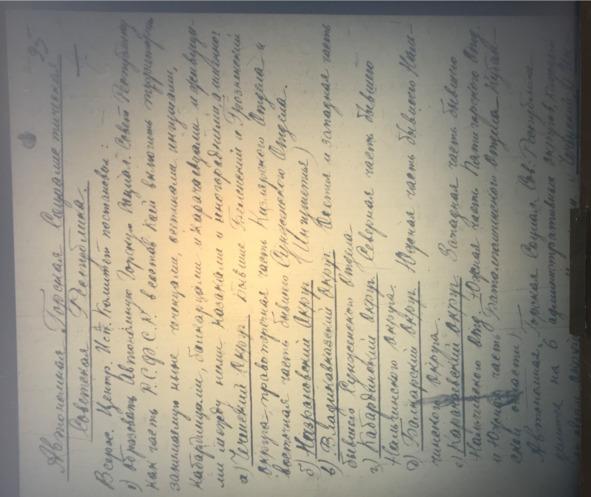 35
Автономная Горская Социалистическая
Советская Республика.
Всерос. Центр. Исп. Комитет постановил:
1) образовать Автономную Горскую Социал. Совет. Республику
как часть Р.С.Ф.С.Р. в состав коей включить территорию
занимаемую ныне чеченцами, осетинами, ингушами,
кабардинцами, балкарцами и карачаевцами и живущи-
ми между ними казаками и иногородними, а именно:
а) Чеченский Округ бывшие Чеченский и Грозненский
округа, правотерская часть Кизлярского Отдела и
восточная часть бывшего Сунженского Отдела.
б) Назрановский Округ (Ингушетия)
в) Владикавказский Округ Осетия и западная часть
бывшего Сунженского отдела
г) Кабардинский Округ (Северная часть бывшего
Нальчикского Округа.
д) Балкарский Округ Южная часть бывшего Наль-
чикского Округа.
е) Карачаевский Округ Западная часть бывшего
Нальчикского Южная часть Пятигорского Отд.
и Южная часть Баталпашинского Отдела Кубан-
ской области)
Автономная Горская Социал. Сов. Республика
на 6 административных округов